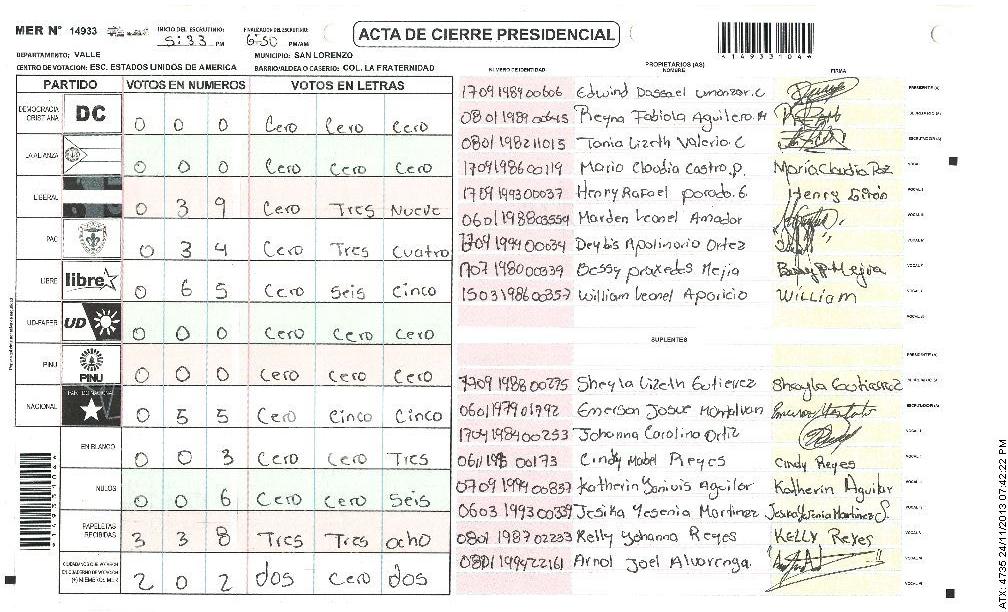 MER Nº 14933 INICIO DEL ESCRUTINIO: 5:33 PM FINALIZACION DEL ESCRUTINIO: 6:50 PM/AM
ACTA DE CIERRE PRESIDENCIAL
41493310 4
DEPARTAMENTO: VALLE MUNICIPIO: SAN LORENZO
CENTRO DE VOTACION: ESC. ESTADOS UNIDOS DE AMERICA BARRIO/ALDEA O CASERIO: COL. LA FRATERNIDAD
PARTIDO VOTOS EN NUMEROS VOTOS EN LETRAS
DEMOCRACIA CRISTIANA DC 0 0 0 Cero Cero Cero
LA ALIANZA 0 0 0 Cero Cero Cero
LIBERAL 0 3 9 Cero Tres Nueve
PAC 0 3 4 Cero Tres Cuatro
LIBRE libre 0 6 5 Cero Seis Cinco
UD-FAPER UD 0 0 0 Cero Cero Cero
PINU PINU 0 0 0 Cero Cero Cero
NACIONAL 0 5 5 Cero Cinco Cinco
EN BLANCO 0 0 3 Cero Cero Tres
NULOS 0 0 6 Cero Cero Seis
PAPELETAS RECIBIDAS 3 3 8 Tres Tres ocho
CIUDADANOS QUE VOTARON EN CUADERNO DE VOTACION (+) MIEMBROS MER 2 0 2 dos Cero dos
PROPIETARIOS (AS)
NUMERO DE IDENTIDAD NOMBRE FIRMA
1709198900606 Edwind Dassael PRESIDENTE (A)
0801198900645 Reyna Fabiola Aguilera SECRETARIO (A)
0801198211013 Tania Lizeth Valerio C ESCRUTADOR (A)
1709198600119 Mario Claudia Castro.p. María Claudia Paz VOCAL I
1709199300037 Henry Rafael G. Henry Girón VOCAL II
0601198803554 Marden Leonel Amador VOCAL III
1709199400034 Deybis Apolinario Ortez VOCAL IV
1707198000339 Bessy praxedes Mejia Bessy P Mejia VOCAL V
1503198600357 William Leonel Aparicio WILLIAM
SUPLENTES
PRESIDENTE (A)
1709198800275 Sheyla Lizeth Gutierrez Sheyla Gutierrez SECRETARIO (A)
0601197901792 Emerson Josue Montalvan ESCRUTADOR (A)
1704198400253 Johanna Carolina Ortiz
00173 Cindy Mabel Reyes Cindy Reyes
0709199400837 Katherin Aguilar Katherin Aguilar
0603199300339 Jesika Yesenia Martinez Jesika Yesenia Martinez S.
0801198702233 Kelly Yohanna Reyes KELLY Reyes
0801199422161 Arnol Joel Alvarenga.
ATX: 4735 24/11/2013 07:42:22 PM